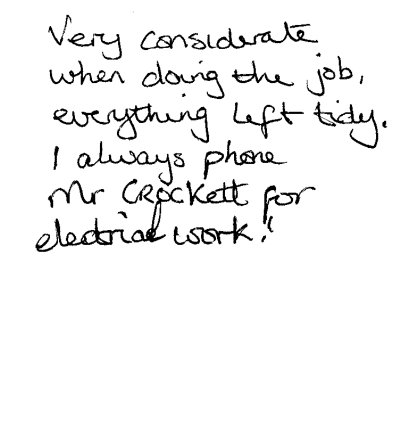 Very considerate
when doing the job,
everything left tidy.
I always phone
Mr Crockett for
electrical work!